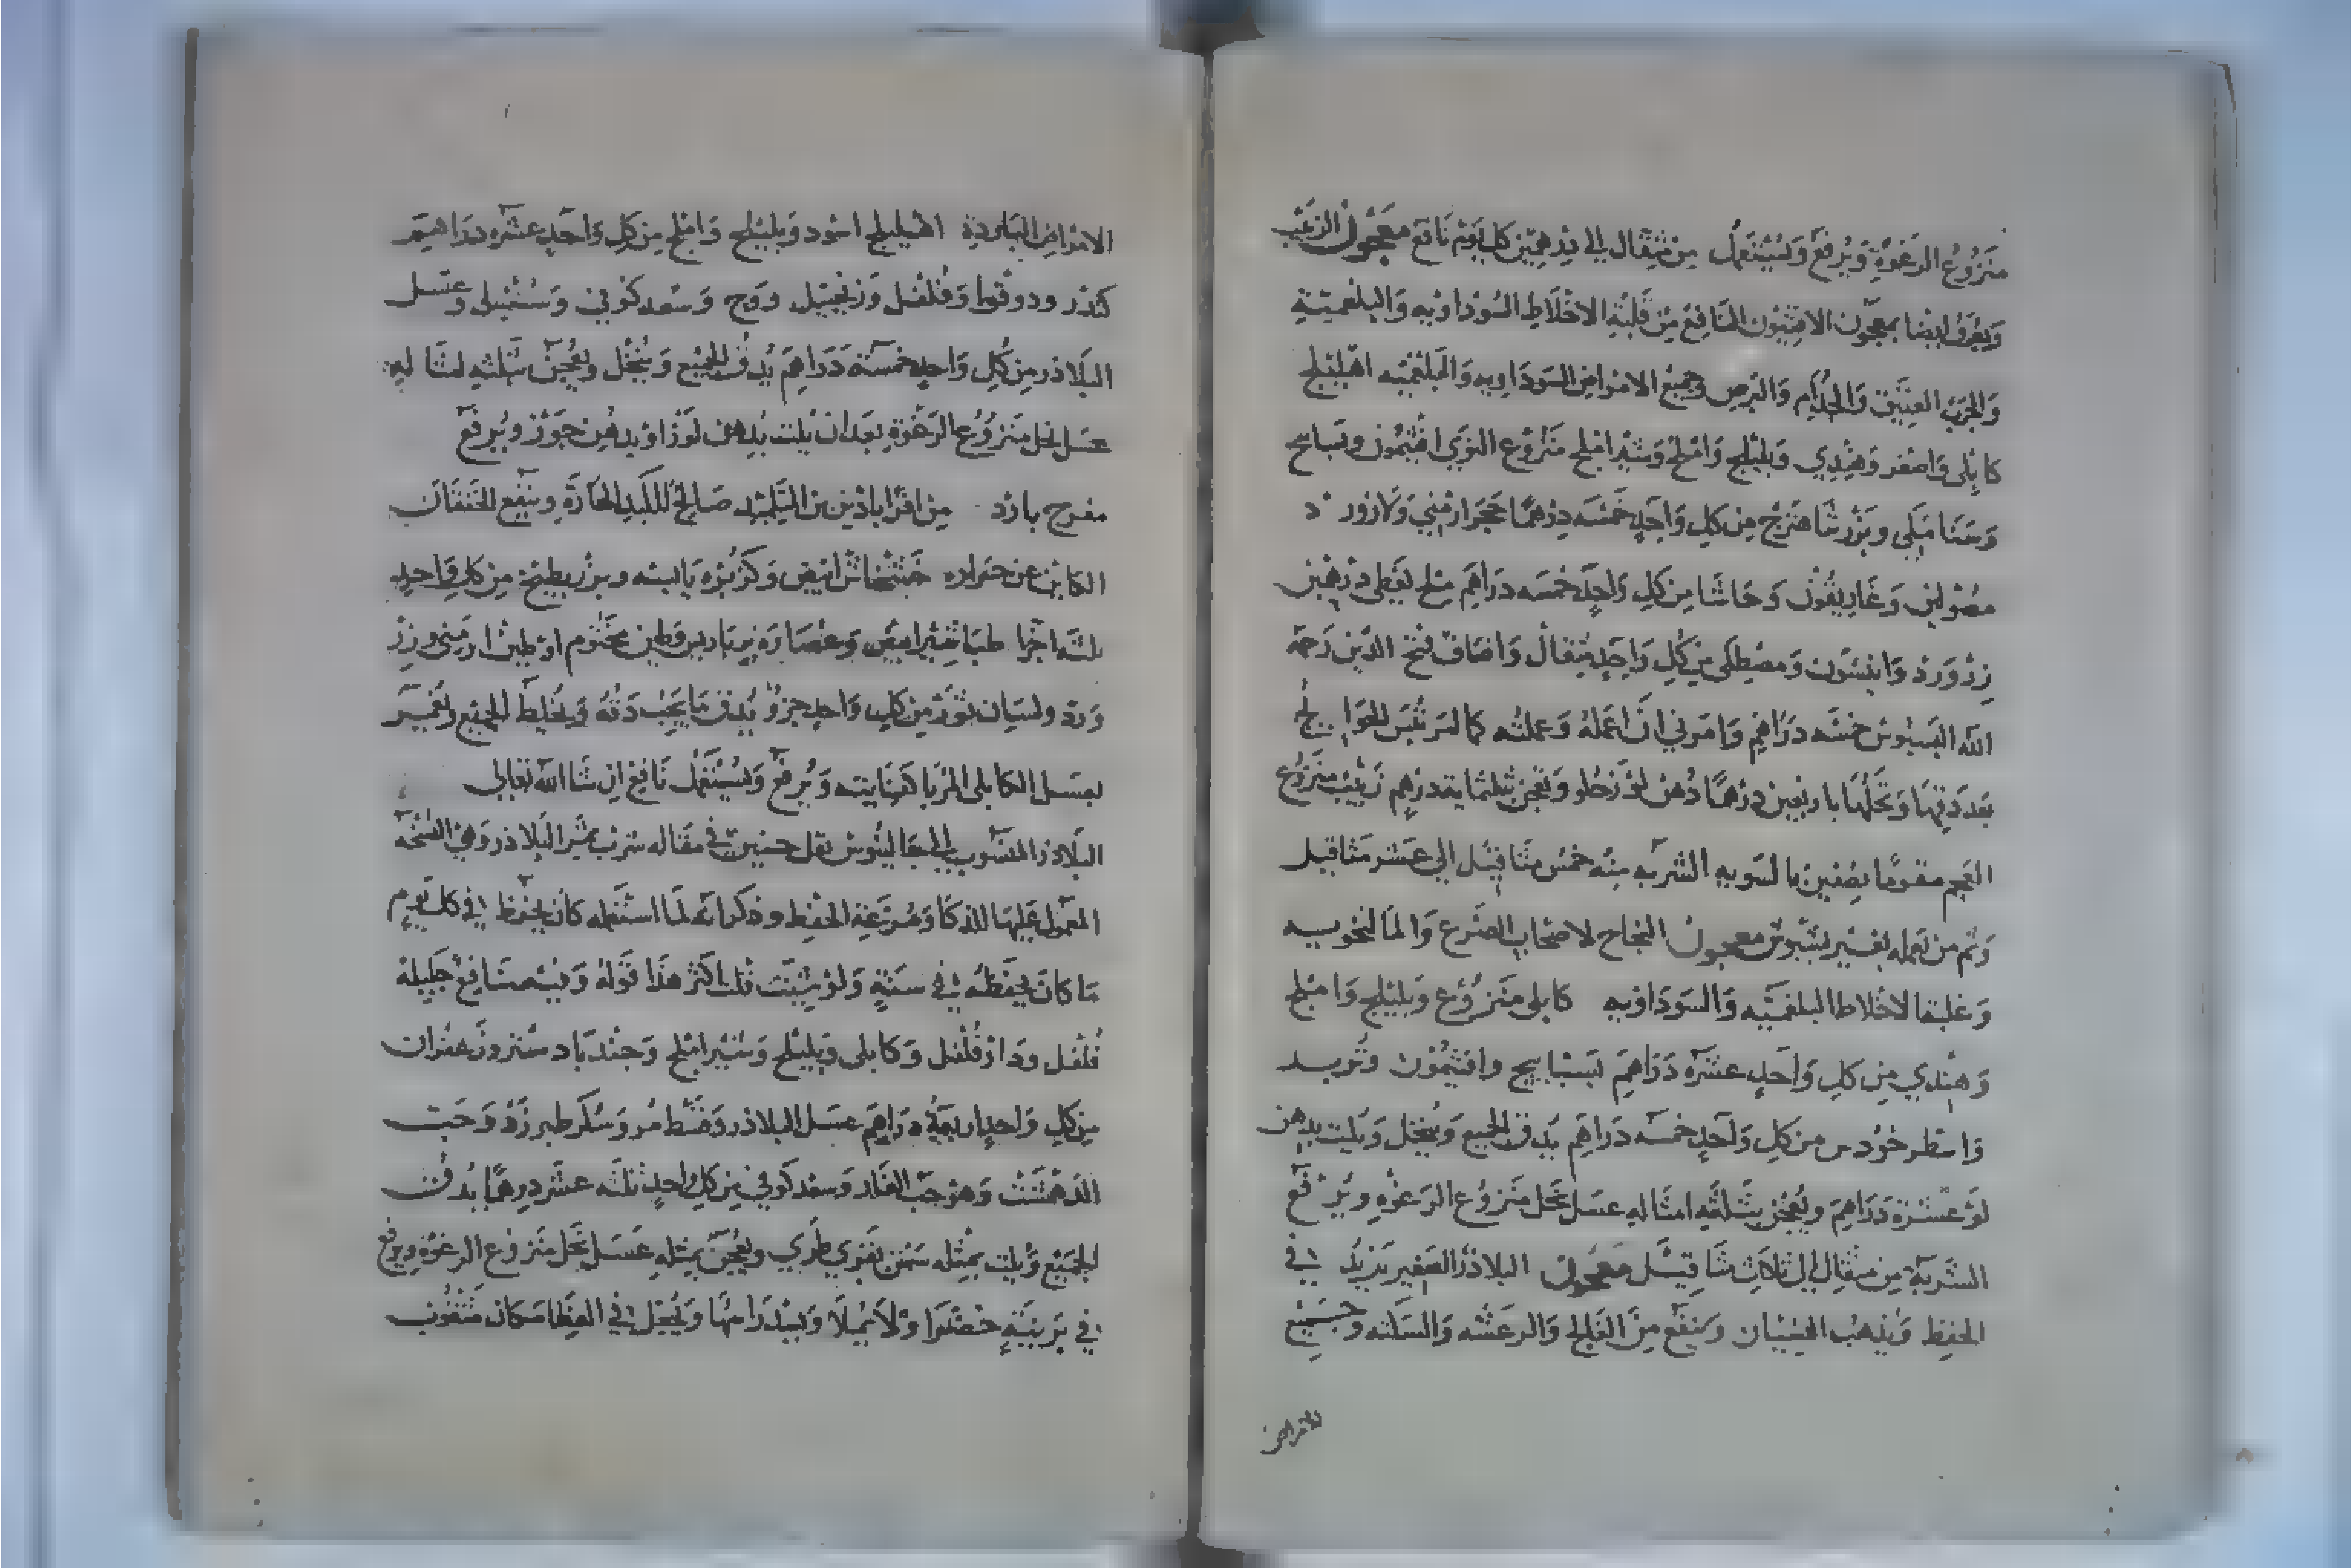 منزوع الرغوة ويرفع ويستعمل من مثقال الى درهمين كل يوم نافع معجون الزبيب
ويعرف ايضا بمعجون الافتيمون النافع من غلبة الاخلاط السوداويه والبلغمية
والجرب العتيق والجذام والبرص وجميع الامراض السوداويه والبلغميه اهليلج
كابلي واصفر وهندي وبليلج واملج وشير املج منزوع النوي افتيمون وبسايج
وسنا مكي وبزر شاهترج من كل واحد خمسه درهما حجر ارمني ولازورد
مصولين وغاريقون وحاشا من كل واحد خمسه دراهم ملح نفطي درهمين
زر ورد وانيسون ومصطكى من كل واحد مثقال واضاف فتح الدين رحمه
الله البسبوس خمسه دراهم وامرني ان اعمله وعملته كما لتر تلبس الحوايج
بعد دقها ونخلها باربعين درهما دهن لوز حلو وتعجن بثلثمايه درهم زبيب منزوع
العجم مقوما بصنين بالسويه الشربه منه خمس مثاقيل الى عشر مثاقيل
وثم من يعمله بغير معجون النجاح لاصحاب الصرع والمالنخوليه
وغلبة الاخلاط البلغميه والسوداويه كابلى منزوع وبليلج واملج
وهندي من كل واحد عشره دراهم بسبايج وافتيمون وتربد
واسطوخودس من كل واحد خمسه دراهم يدق الجميع وينخل ويلت بدهن
لوز عشرة دراهم ويعجن بثلثه امثاله عسل نحل منزوع الرغوه ويرفع
الشربة من مثقال الى ثلاث مثاقيل معجون البلاذر الصغير يزيد في
الحفظ ويذهب النسيان وينفع من الفالج والرعشه والسكته وجميع
الامراض
الامراض الباردة اهليلج اسود وبليلج واملج من كل واحد عشره دراهم
كندر ودوقوا وفلفل وزنجبيل ووج وسعد كوفي وسنبل وعسل
البلاذر من كل واحد خمسه دراهم يدق الجميع وينخل ويعجن بثلثه امثاله
عسل نحل منزوع الرغوة بعد ان يلت بدهن لوز او بدهن جوز ويرفع
مفرح بارد من اقراباذين بن التلميذ صالح للكبد الحارة وينفع الخفقان
الكاين عن حراره خشخاش ابيض وكزبره يابسه وبزر بطيخ من كل واحد
ثلثه اجزا طباشير ابيض وعصاره برباريس وطين مختوم او طين ارمني وزر
ورد ولسيان ثور من كل واحد جزو يدق ما يجب دقه ويخلط الجميع ويخمر
بعسل الكابلى المربا كفايته ويرفع ويستعمل نافع ان شا الله تعالى
البلاذر المنسوب الى جالينوس نقل حنين في مقاله شرب ثمر البلاذر وهي النسخه
المعول عليها للذكا وسرعة الحفظ وذكر انه لما استعمله كان يحفظ في كل يوم
ما كان يحفظه في سنة ولو شيت قلت اكثر هذا قوله وفيه منافع جليلة
فلفل ودارفلفل وكابلى وبليلج وشير املج وجندبادستر وزعفران
من كل واحد اربعة دراهم عسل البلاذر وقسط مر وسكر طبرزد وحب
الدهمست وهو حب الغار وسعد كوفي من كل واحد ثلثه عشر درهما يدق
الجميع ويلت بمثله سمن بقري طري ويعجن بمثله عسل نحل منزوع الرغوة ويرفع
في برنية خضرا ولا يملا ويسد راسها ويجعل في الغطا مكان مثقوب